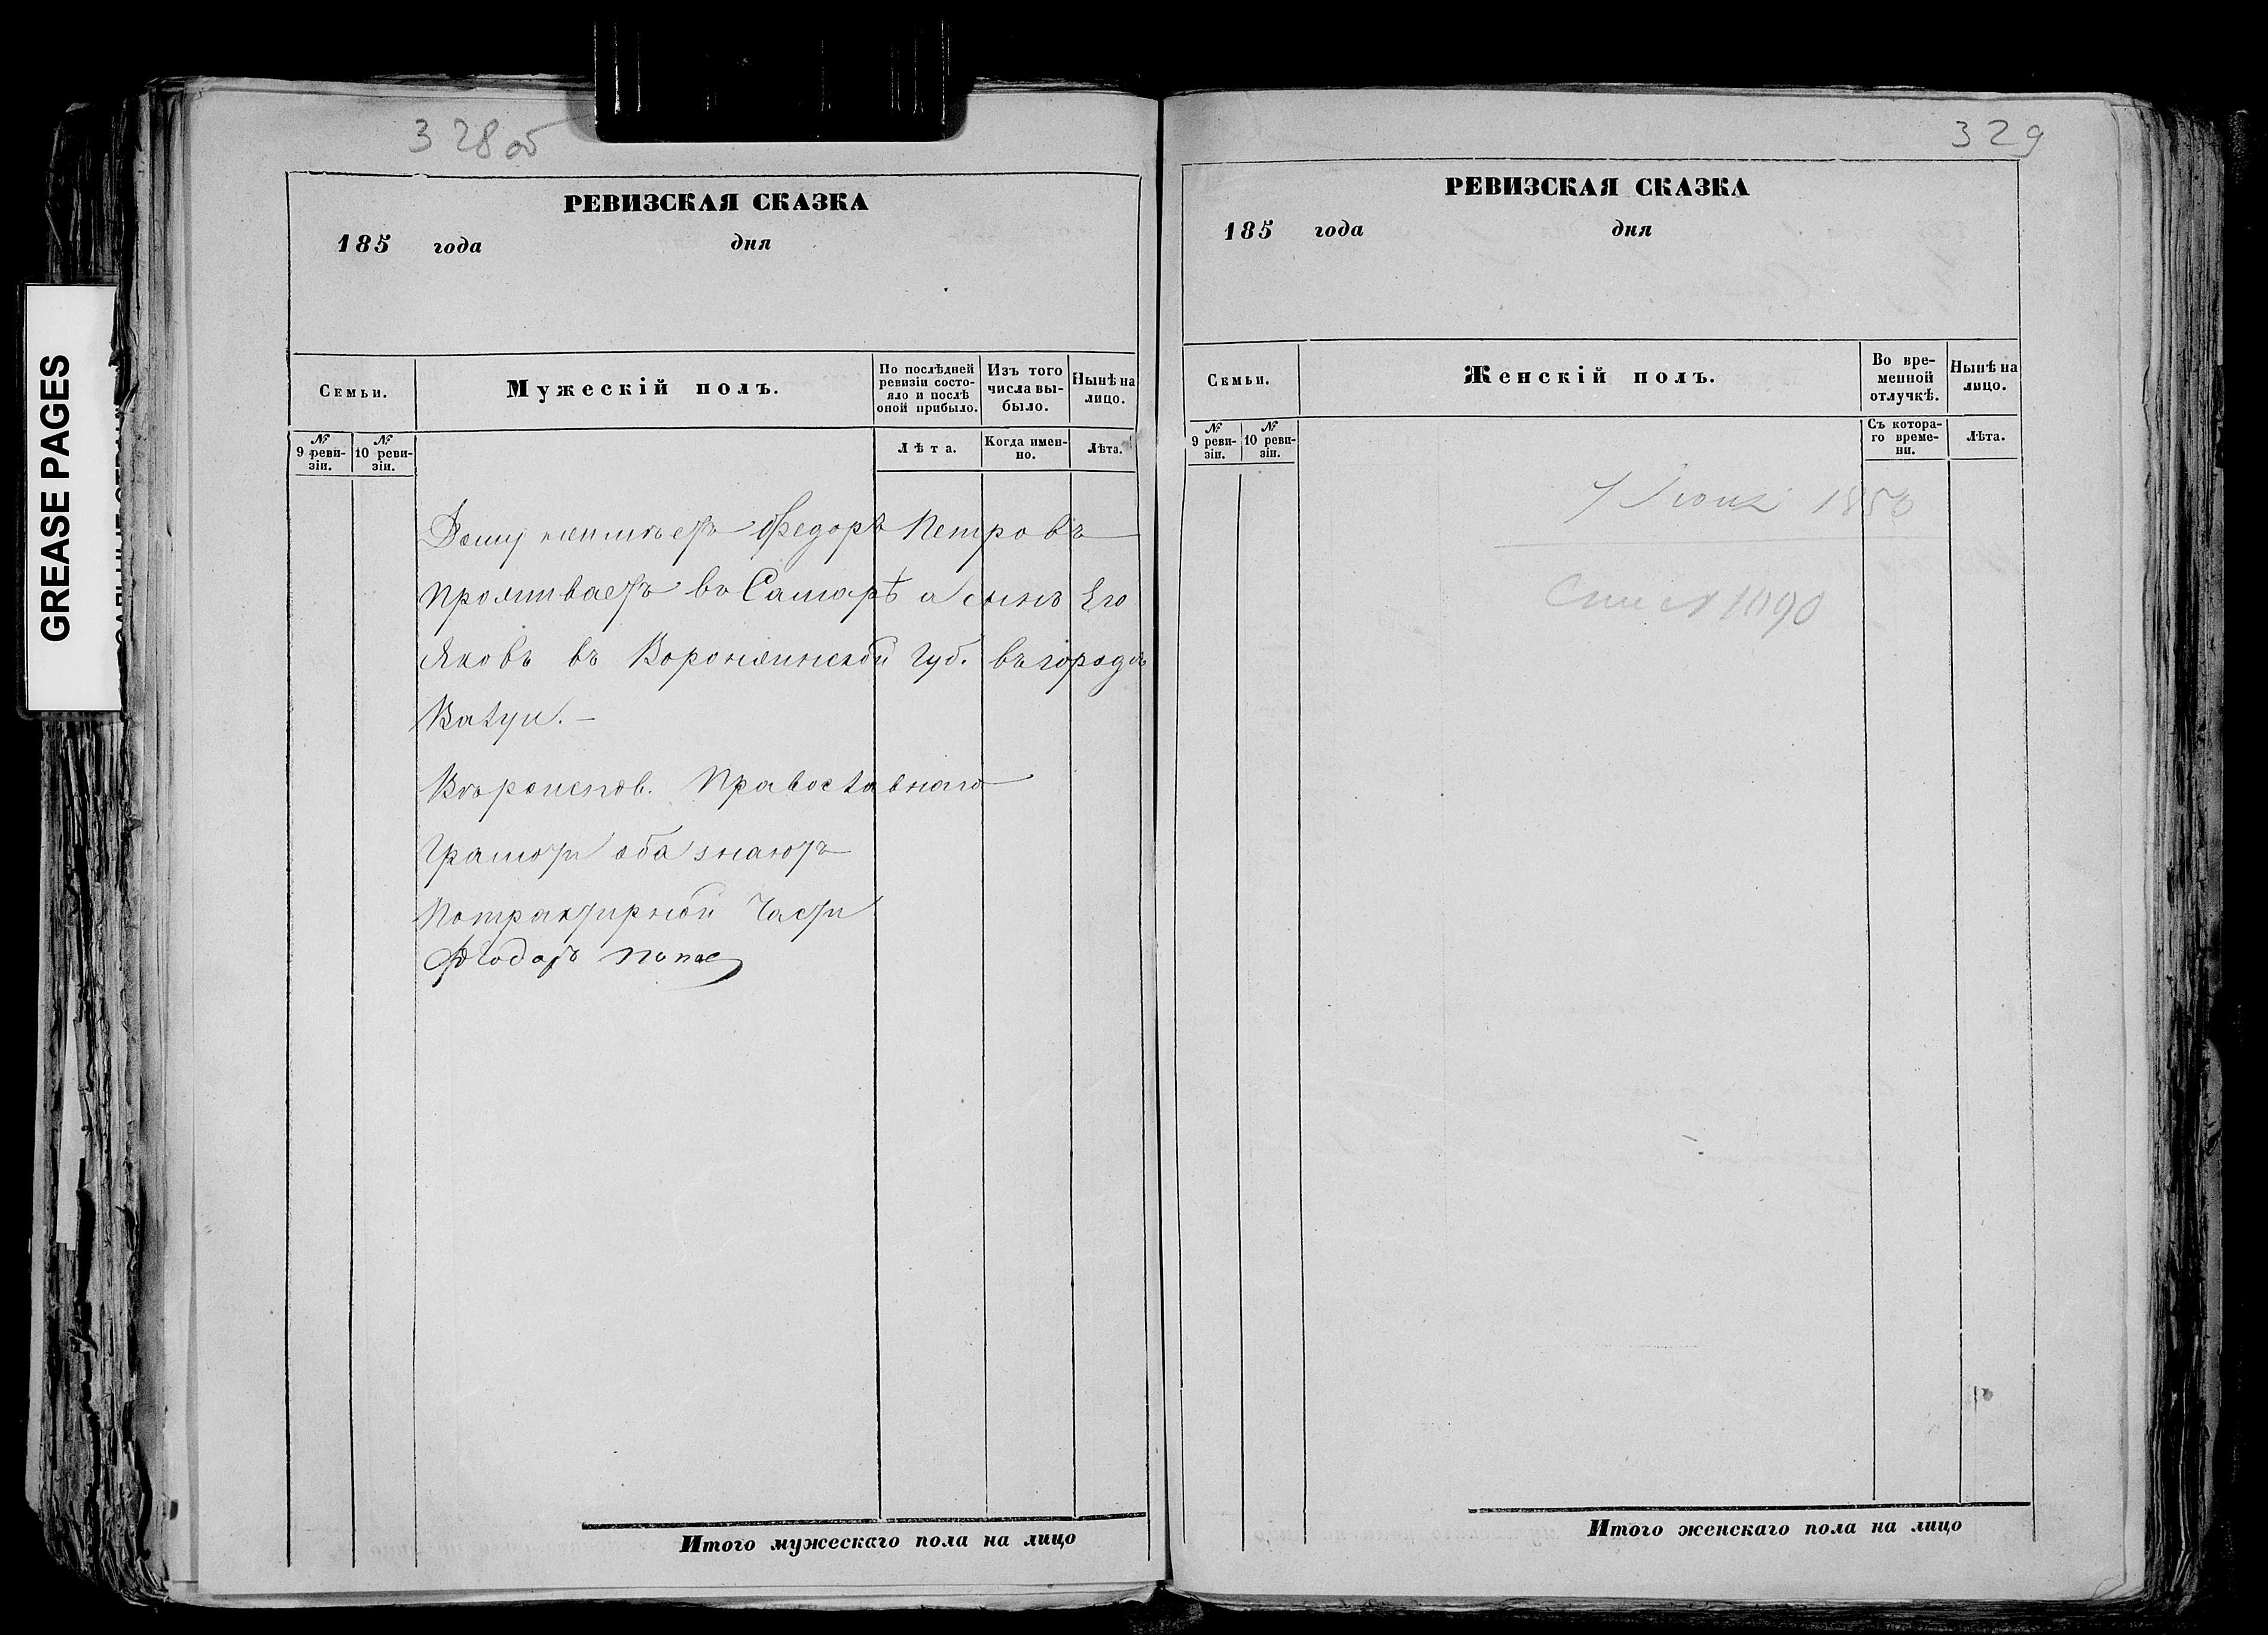 328об
РЕВИЗСКАЯ СКАЗКА
185 года дня
Семьи.
Мужескій полъ.
По послѣдней ревизіи состояло и послѣ оной прибыло.
Изъ того числа выбыло.
Нынѣ на лицо.
№ 9 ревизіи.
№ 10 ревизіи.
Лѣта.
Когда именно.
Лѣта.
Федоръ Петровъ
проживаетъ въ Самарѣ а сынъ Его
Яковъ въ Воронежской Губ. въ городѣ
Вѣроиспов. Православнаго
Грамоти оба знаютъ
По трактирной Части
Итого мужескаго пола на лицо
329
РЕВИЗСКАЯ СКАЗКА
185 года дня
Семьи.
Женскій полъ.
Во временной отлучкѣ.
Нынѣ на лицо.
№ 9 ревизіи.
№ 10 ревизіи.
Съ котораго времени.
Лѣта.
1858
Итого женскаго пола на лицо
GREASE PAGES